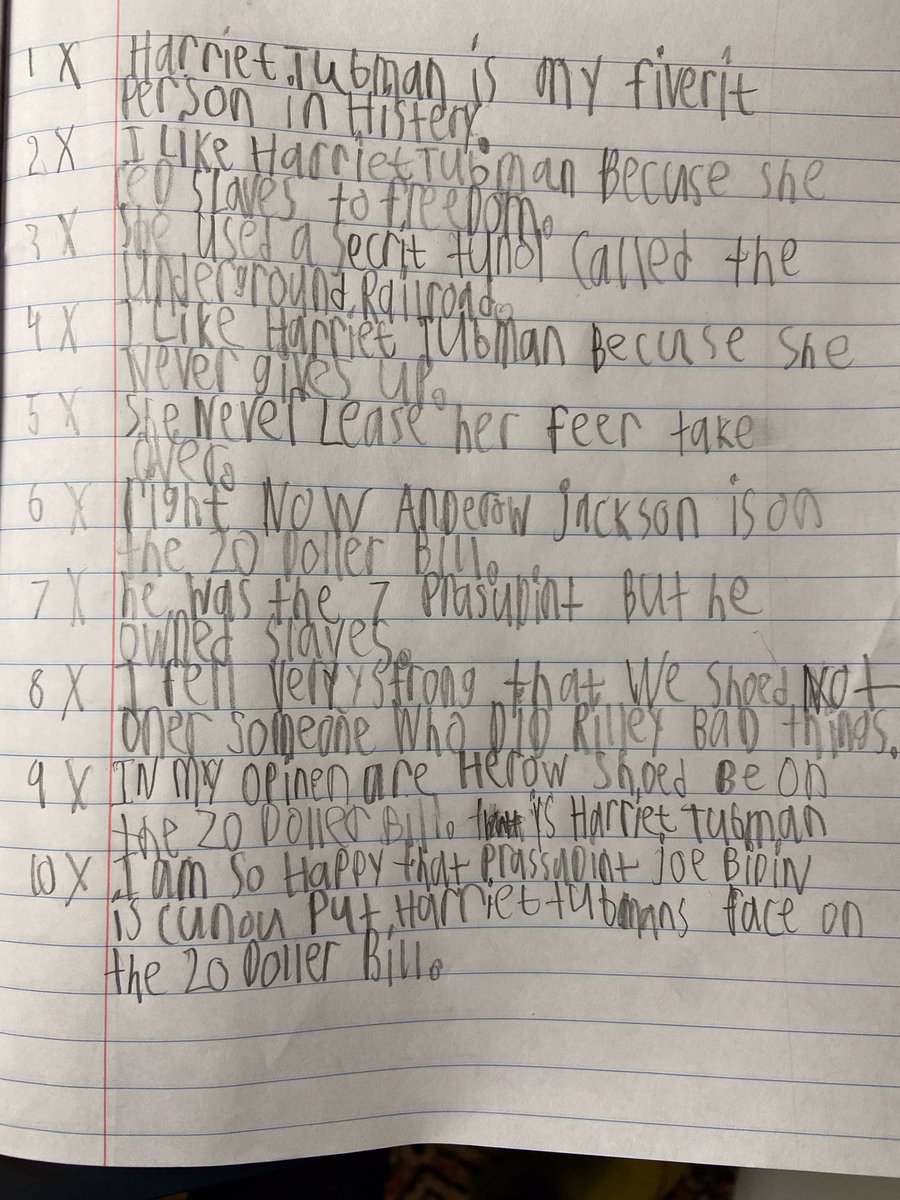 1 X Harriet Tubman is my fiverit
Person in Histery.
2 X I Like Harriet Tubman Becuse she
led slaves to freedom.
3 X She used a secrit tunol called the
Underground Railroad.
4 X I Like Harriet Tubman Becuse she
Never gives up.
5 X She Never Lease her feer take
over.
6 X Right Now Anderow jackson is on
the 20 Doller Bill.
7 X he was the 7 Prasudint But he
owned slaves.
8 X I fell very strong that We Shoed Not
oner someone Who DiD Rilley BaD things.
9 X IN my opinen are Herow Shoed Be on
the 20 Doller Bill. is Harriet Tubman
10 X I am so Happy that Prassudint joe BiDiN
is cunou Put Harriet tubmans face on
the 20 Doller Bill.